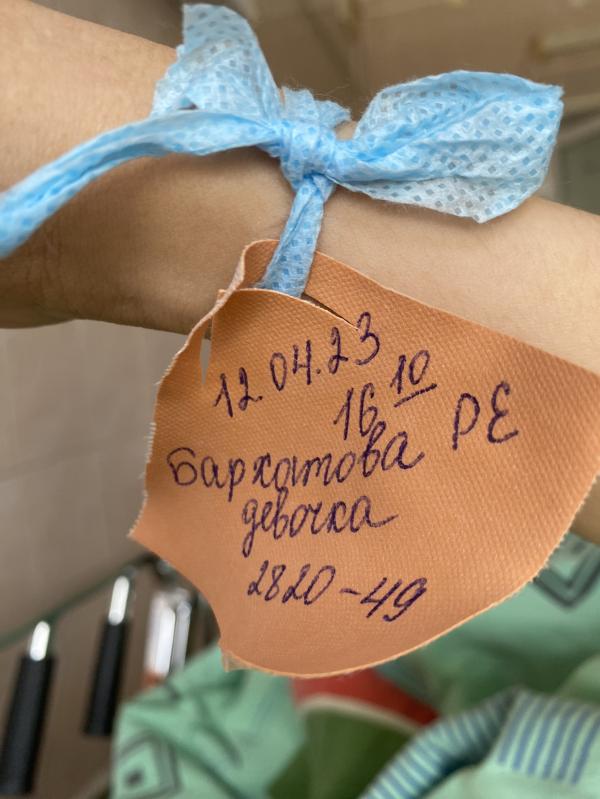 12.04.23
16 10 РЕ
Бархатова
девочка
2820-49